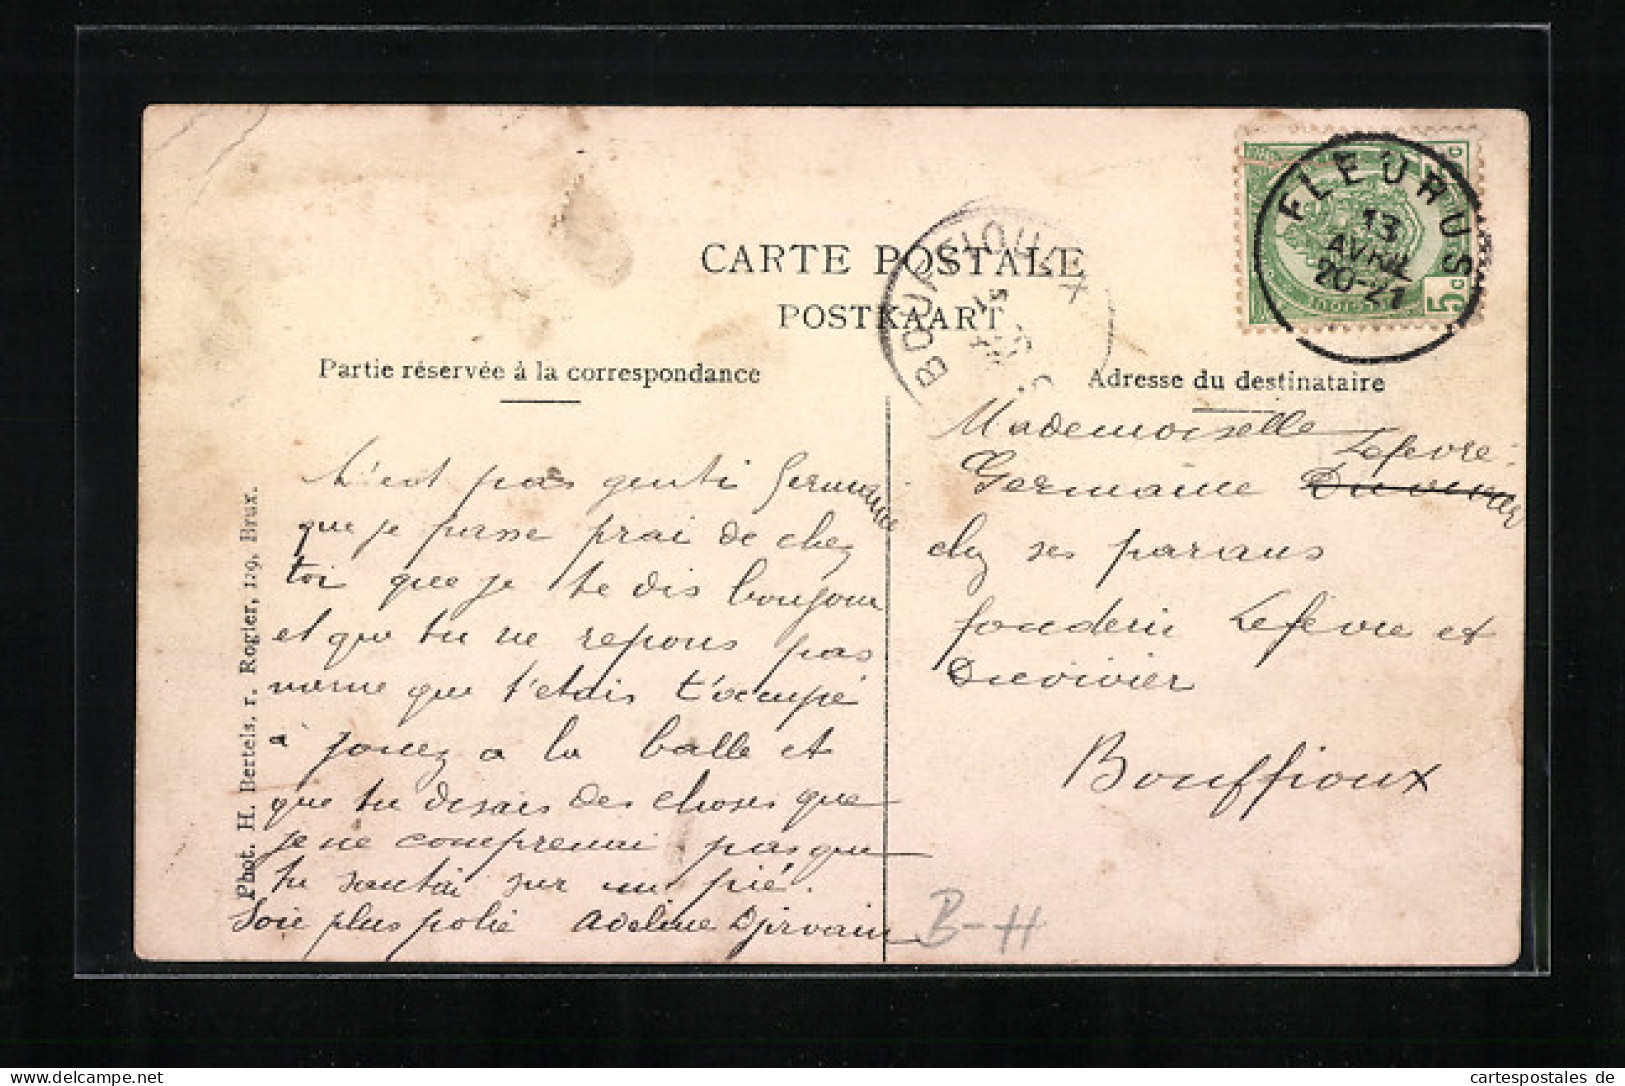 CARTE POSTALE
POSTKAART
Partie réservée à la correspondance
Adresse du destinataire
FLEURUS
13
AVRIL
20-21
5 c
BOUFFIOULX
C'est pas genti Germaine
que je passe prai de chez
toi que je te dis bonjour
et que tu ne repons pas
meme que t'etais t'occupé
à jouez a la balle et
que tu disais des choses que
je ne comprenai pas que
tu sautai sur un pié.
Soie plus polie Adeline
Mademoiselle
Germaine Lefevre
chez ses parans
fonderie Lefèvre et
Duvivier
Bouffioux
B-H
Phot. H. Bertels, r. Rogier, 129, Brux.
Ihr Partner für den An- und Verkauf alter Ansichtskarten
cartespostales de